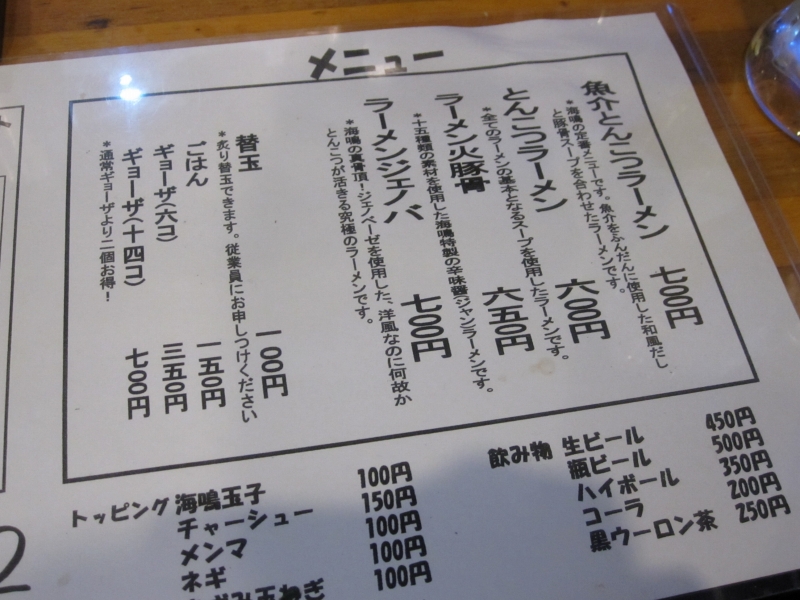 メニュー
魚介とんこつラーメン 七〇〇円
*海鳴の定番メニューです。魚介をふんだんに使用した和風だし
と豚骨スープを合わせたラーメンです。
とんこつラーメン 六〇〇円
*全てのラーメンの基本となるスープを使用したラーメンです。
ラーメン火豚骨 六五〇円
*十五種類の素材を使用した海鳴特製の辛味醤(ジャンラーメンです。
ラーメンジェノバ 七〇〇円
*海鳴の真骨頂!ジェノベーゼを使用した、洋風なのに何故か
とんこつが活きる究極のラーメンです。
替玉 一〇〇円
*炙り替玉できます。従業員にお申しつけください
ごはん 一五〇円
ギョーザ(六コ) 三五〇円
ギョーザ(十四コ) 七〇〇円
*通常ギョーザより二個お得!
トッピング 海鳴玉子 100円
チャーシュー 150円
メンマ 100円
ネギ 100円
玉ねぎ 100円
飲み物 生ビール 450円
瓶ビール 500円
ハイボール 350円
コーラ 200円
黒ウーロン茶 250円
2